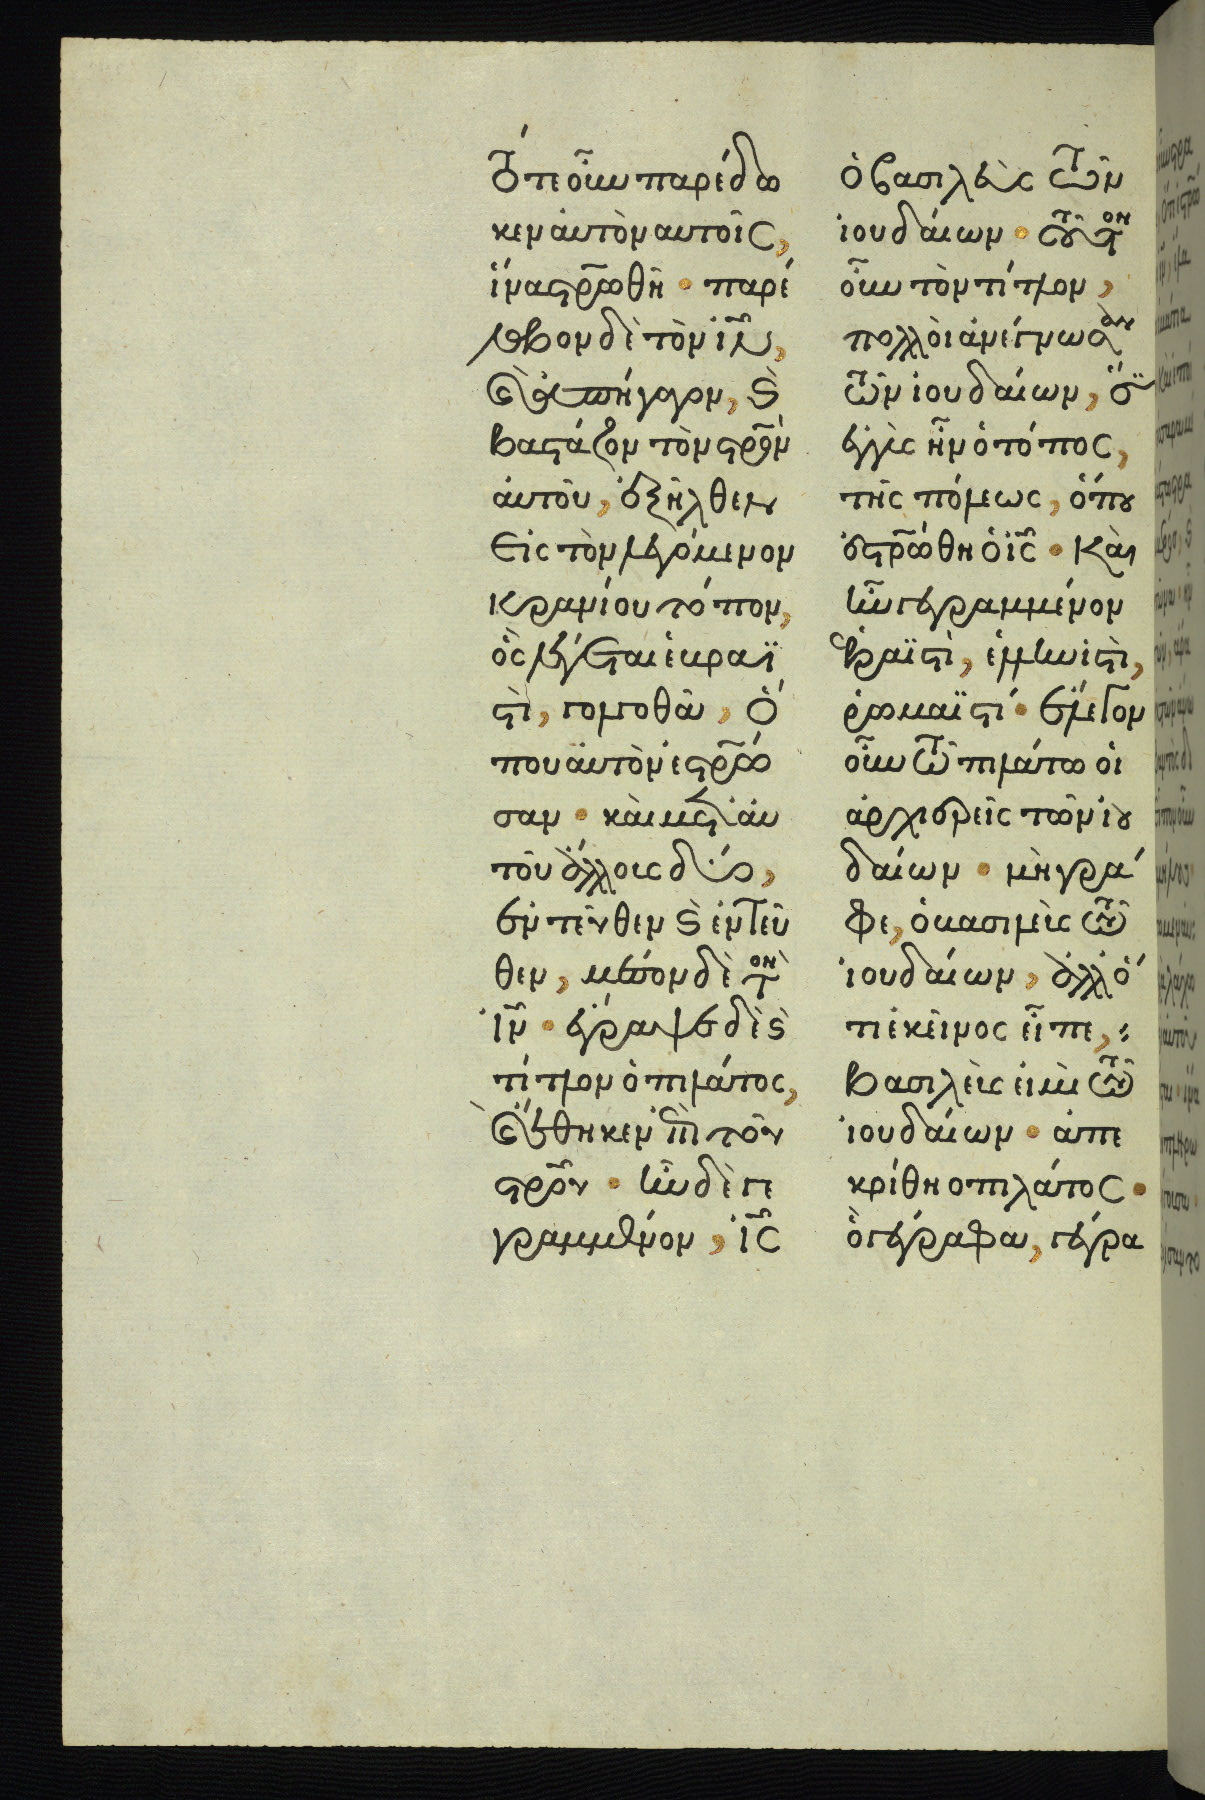 Τότε οὖν παρέδω
κεν αὐτὸν αυτοῖς,
ἵνα στρ̅ωθῆ · παρέ
λαβον δὲ τὸν ι̅ν̅,
καὶ ἀπήγαγον, καὶ
βαστάζων τὸν στρ̅ὸν
αὐτοῦ, ἐξῆλθεν
εἰς τὸν λεγόμενον
κρανίου τόπον,
ὃς λέγεται ἑβραϊ
στὶ, γολγοθᾶ, ὅ
που αὐτὸν ἐστρ̅ώ
σαν · καὶ μετ' αὐ
τοῦ ἄλλους δύο,
ἐντεῦθεν καὶ ἐντεῦ
θεν, μέσον δὲ τὸν
ι̅ν̅ · ἔγραψε δὲ καὶ
τίτλον ὁ πιλάτος,
καὶ ἔθηκεν ἐπὶ τοῦ
στρ̅οῦ · ἦν δὲ γε
γραμμένον, ι̅ς̅
ὁ βασιλεὺς τῶν
ἰουδαίων · τοῦτον
οὖν τὸν τίτλον,
πολλοὶ ἀνέγνωσαν
τῶν ἰουδαίων, ὅτι
ἐγγὺς ἦν ὁ τόπος,
τῆς πόλεως, ὅπου
ἐστρ̅ώθη ὁ ι̅ς̅ · καὶ
ἦν γεγραμμένον
ἑβραϊστὶ, ἑλληνιστὶ,
ῥωμαϊστί · ἔλεγον
οὖν τῶ πιλάτω οἱ
ἀρχιερεῖς τῶν ἰου
δαίων · μὴ γρά
φε, ὁ βασιλεὺς τῶν
ἰουδαίων, ἀλλ' ὅ
τι ἐκεῖνος εἶπε,
βασιλεὺς εἰμὶ τῶν
ἰουδαίων · ἀπε
κρίθη ο πιλάτος ·
ὃ γέγραφα, γέγρα